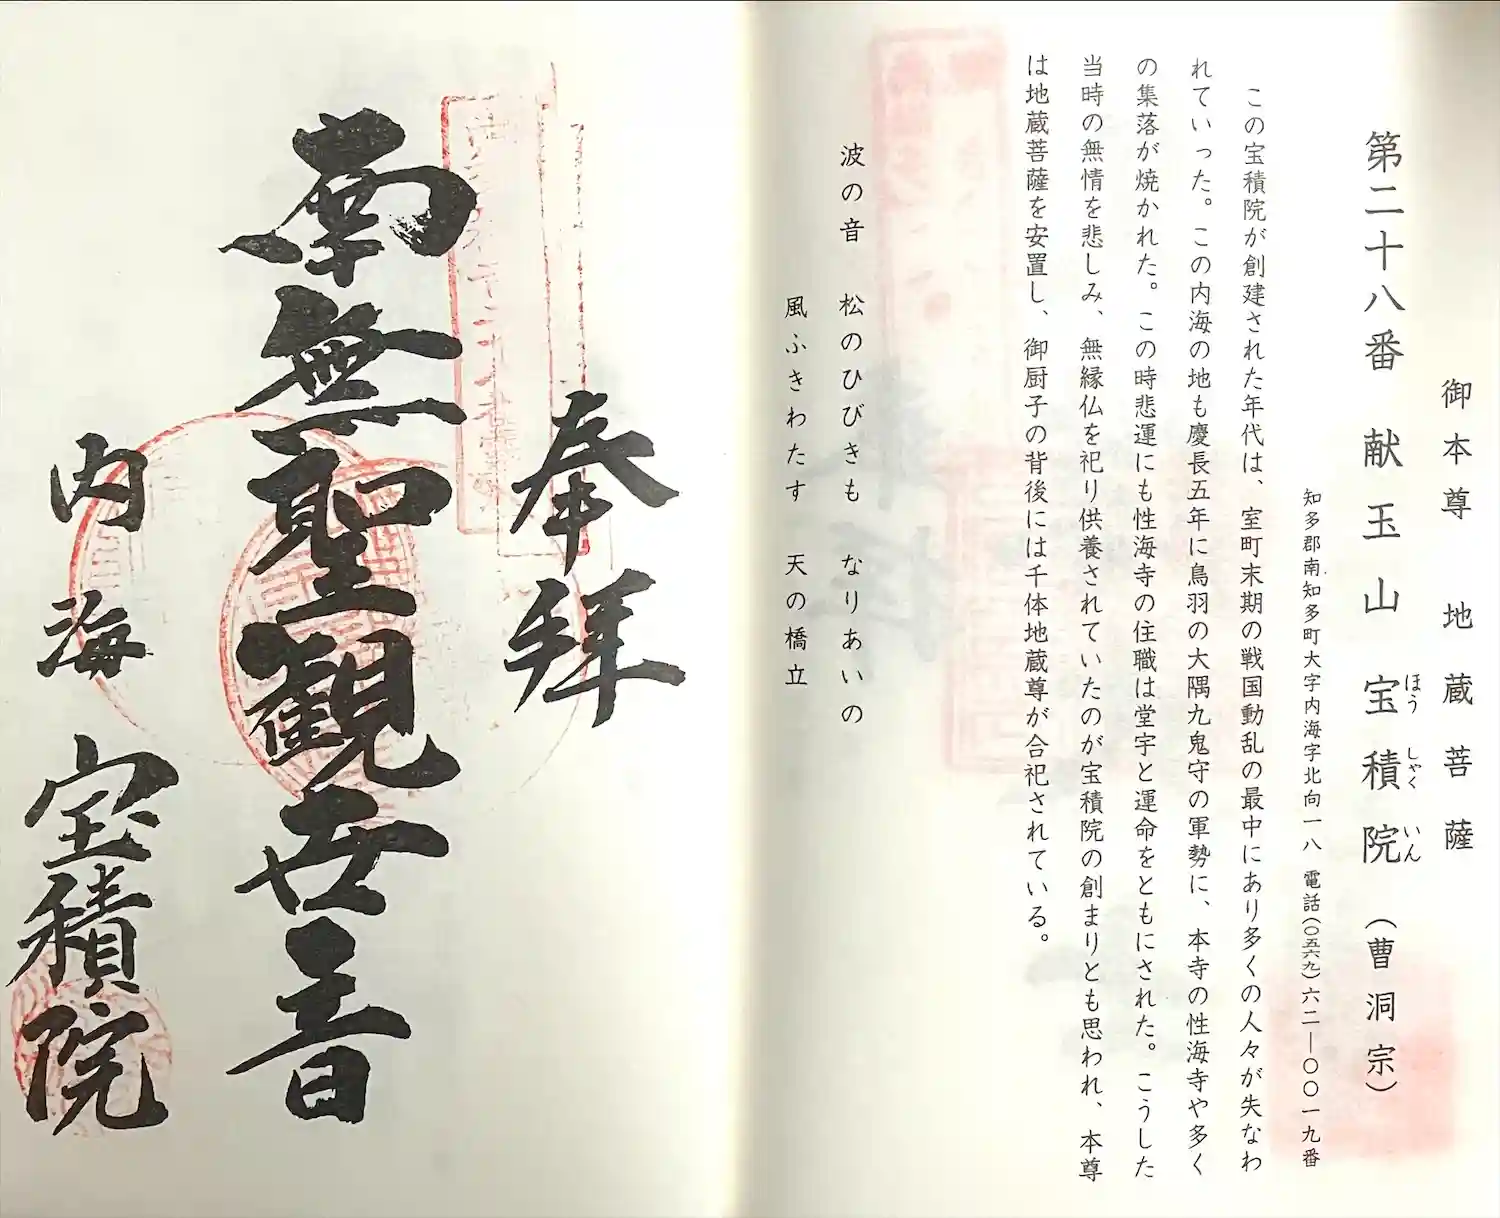 御本尊　地蔵菩薩
第二十八番　献玉山　宝積院（曹洞宗）
ほうしゃくいん
知多郡南知多町大字内海字北向一八　電話（〇五六九）六二―〇〇一九番
この宝積院が創建された年代は、室町末期の戦国動乱の最中にあり多くの人々が失なわ
れていった。この内海の地も慶長五年に鳥羽の大隅九鬼守の軍勢に、本寺の性海寺や多く
の集落が焼かれた。この時悲運にも性海寺の住職は堂宇と運命をともにされた。こうした
当時の無情を悲しみ、無縁仏を祀り供養されていたのが宝積院の創まりとも思われ、本尊
は地蔵菩薩を安置し、御厨子の背後には千体地蔵尊が合祀されている。
波の音　松のひびきも　なりあいの
風ふきわたす　天の橋立
奉拝
南無聖観世音
内海　宝積院